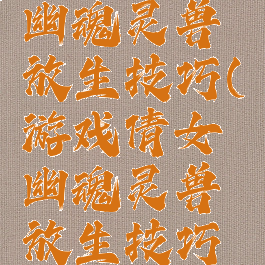 幽魂灵兽
放生技巧(
游戏倩女
幽魂灵兽
放生技巧